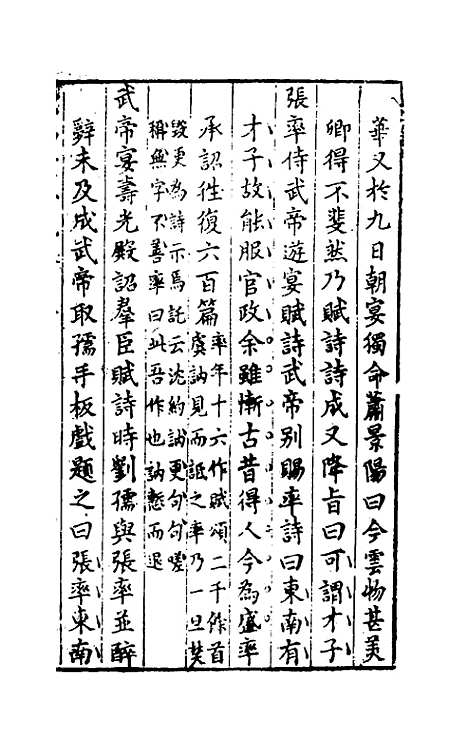 華又於九日朝宴獨命蕭景陽曰今雲物甚美
卿得不斐然乃賦詩詩成又降旨曰可謂才子
張率侍武帝遊宴賦詩武帝别賜率詩曰東南有
才子故能服官政余雖慚古昔得人今為盛率
承詔往復六百篇
率年十六作賦頌二千餘首
虞訥見而詆之率乃一旦焚
毁更為詩示焉託云沈約訥更句句嗟
稱無字不善率曰此吾作也訥慙而退
武帝宴壽光殿詔羣臣賦詩時劉孺與張率並醉
辭未及成武帝取孺手板戲題之曰張率東南